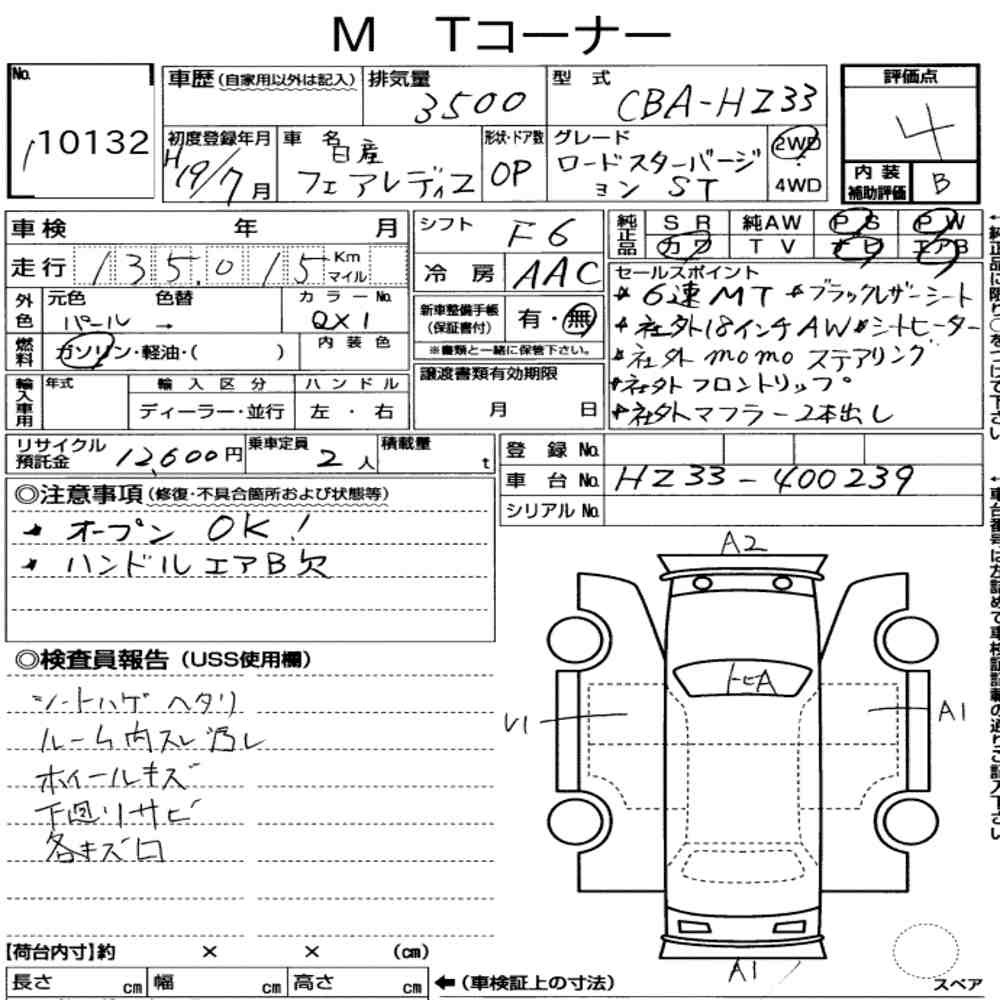 M Tコーナー
No. 10132
車歴 (自家用以外は記入) 排気量 3500 型式 CBA-HZ33 評価点 4
初度登録年月 H19/7月 車名 日産 フェアレディZ 形状・ドア数 OP グレード ロードスターバージョン ST 2WD・4WD
内装補助評価 B
車検 年 月 シフト F6 純正品 SR 純AW PS PW
カワ TV ナビ エアB
走行 135,015 Km マイル 冷房 AAC
セールスポイント
外色 元色 パール 色替 → カラーNo. QX1 新車整備手帳(保証書付) 有・無
※書類と一緒に保管下さい。
* 6速MT * ブラックレザーシート
* 社外18インチAW * シートヒーター
* 社外momoステアリング
* 社外フロントリップ
* 社外マフラー2本出し
燃料 ガソリン・軽油・( ) 内装色
輸入車用 年式 輸入区分 ハンドル
ディーラー・並行 左・右
譲渡書類有効期限
月 日
リサイクル預託金 12,600円 乗車定員 2人 積載量 t
登録No.
車台No. HZ33-400239
シリアルNo.
◎注意事項 (修復・不具合箇所および状態等)
* オープン OK!
* ハンドルエアB欠
◎検査員報告 (USS使用欄)
シートハゲ ヘタリ
ルーム内スレ 汚レ
ホイールキズ
下回リサビ
各キズ凹
A2
トビA
U1
A1
A1
スペア
【荷台内寸】約 × × (cm)
長さ cm 幅 cm 高さ cm ←(車検証上の寸法)